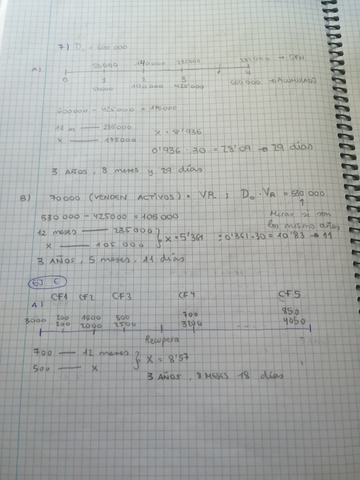 7) D₀ = 600 000
A)
50000 140000 235000
0 1 2 3 4
600 000 - 425 000 = 175000
12 m — 235000
x — 175000
x = 8'936
0'936 · 30 = 28'09 → 29 días
3 AÑOS, 8 meses y 29 días
B) 70000 (VENDEN ACTIVOS) = VR ; D₀ - VR = 530 000
530 000 - 425000 = 105 000
Mirar si son los mismos años
12 meses — 235000
x — 105 000
x = 5'361 ; 0'361 · 30 = 10'83 → 11
3 AÑOS, 5 meses, 11 días
EJ 6
A)
CF1 CF2 CF3 CF4 CF5
3000 1500 500 700 850
2000 2500 4050
Recupera
700 — 12 meses
500 — x
x = 8'57
3 AÑOS, 8 MESES 18 días